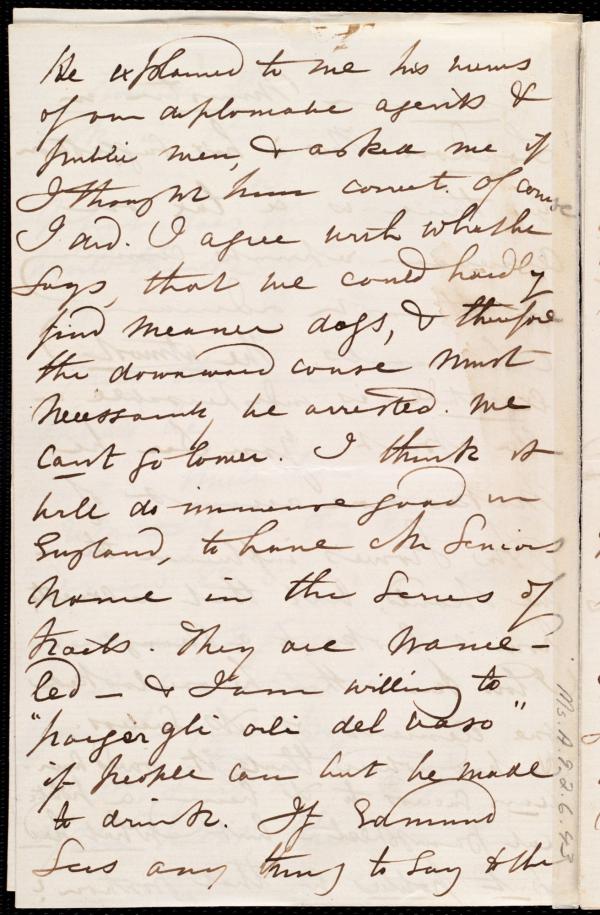 He explained to me his views
of our diplomatic agents &
public men, & asked me if
I thought him correct. Of course
I did. I agree with what he
says, that we could hardly
find meaner dogs, & therefore
the downward course must
necessarily be arrested. We
can't go lower. I think it
will do immense good in
England, to have Mr Seniors
name in the series of
tracts. They are
& I am willing to
"porger gli orli del vaso"
if people can but be made
to drink. If Edmund
sees any thing to say to the
Ms. A.9.2.26.43